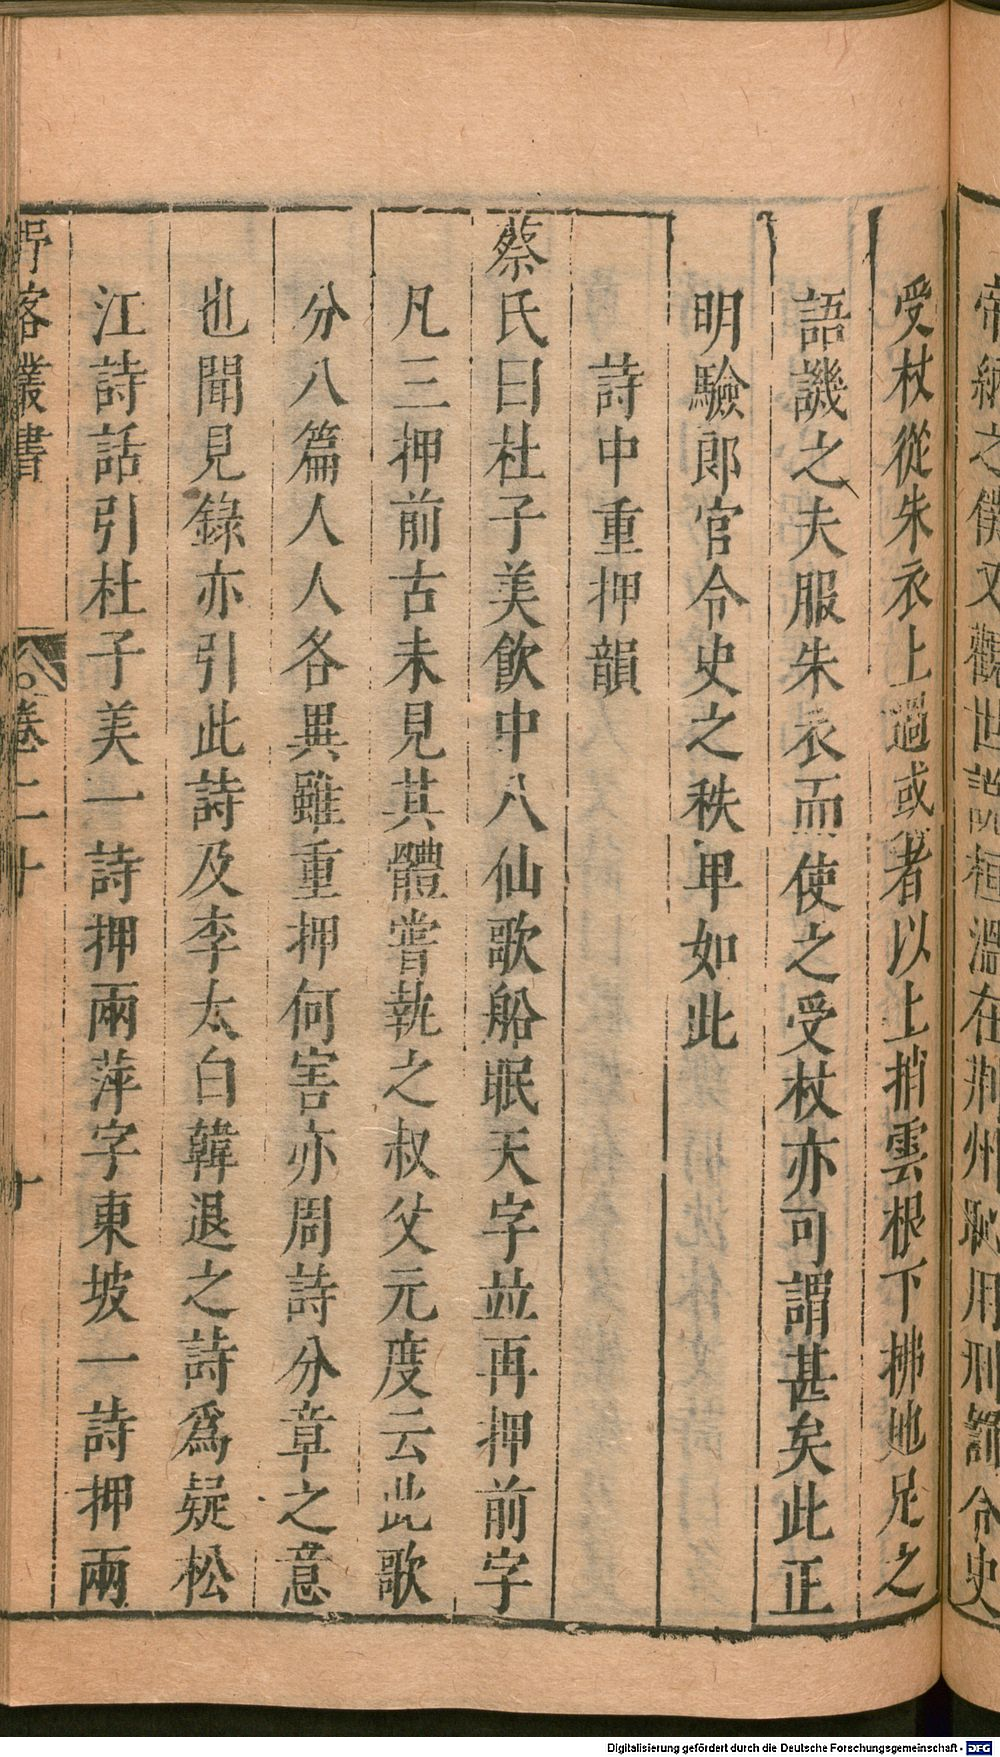 帝
之僕又觀世說桓溫在荆州恥用刑罰令史
受杖從朱衣上過或者以上捎雲根下拂地足之
語譏之夫服朱衣而使之受杖亦可謂甚矣此正
明驗郎官令史之秩卑如此
詩中重押韻
蔡氏曰杜子美飲中八仙歌船眠天字並再押前字
凡三押前古未見其體嘗執之叔父元度云此歌
分八篇人人各異雖重押何害亦周詩分章之意
也聞見錄亦引此詩及李太白韓退之詩爲疑松
江詩話引杜子美一詩押兩萍字東坡一詩押兩
野客叢書
卷二十
十
Digitalisierung gefördert durch die Deutsche Forschungsgemeinschaft - DFG